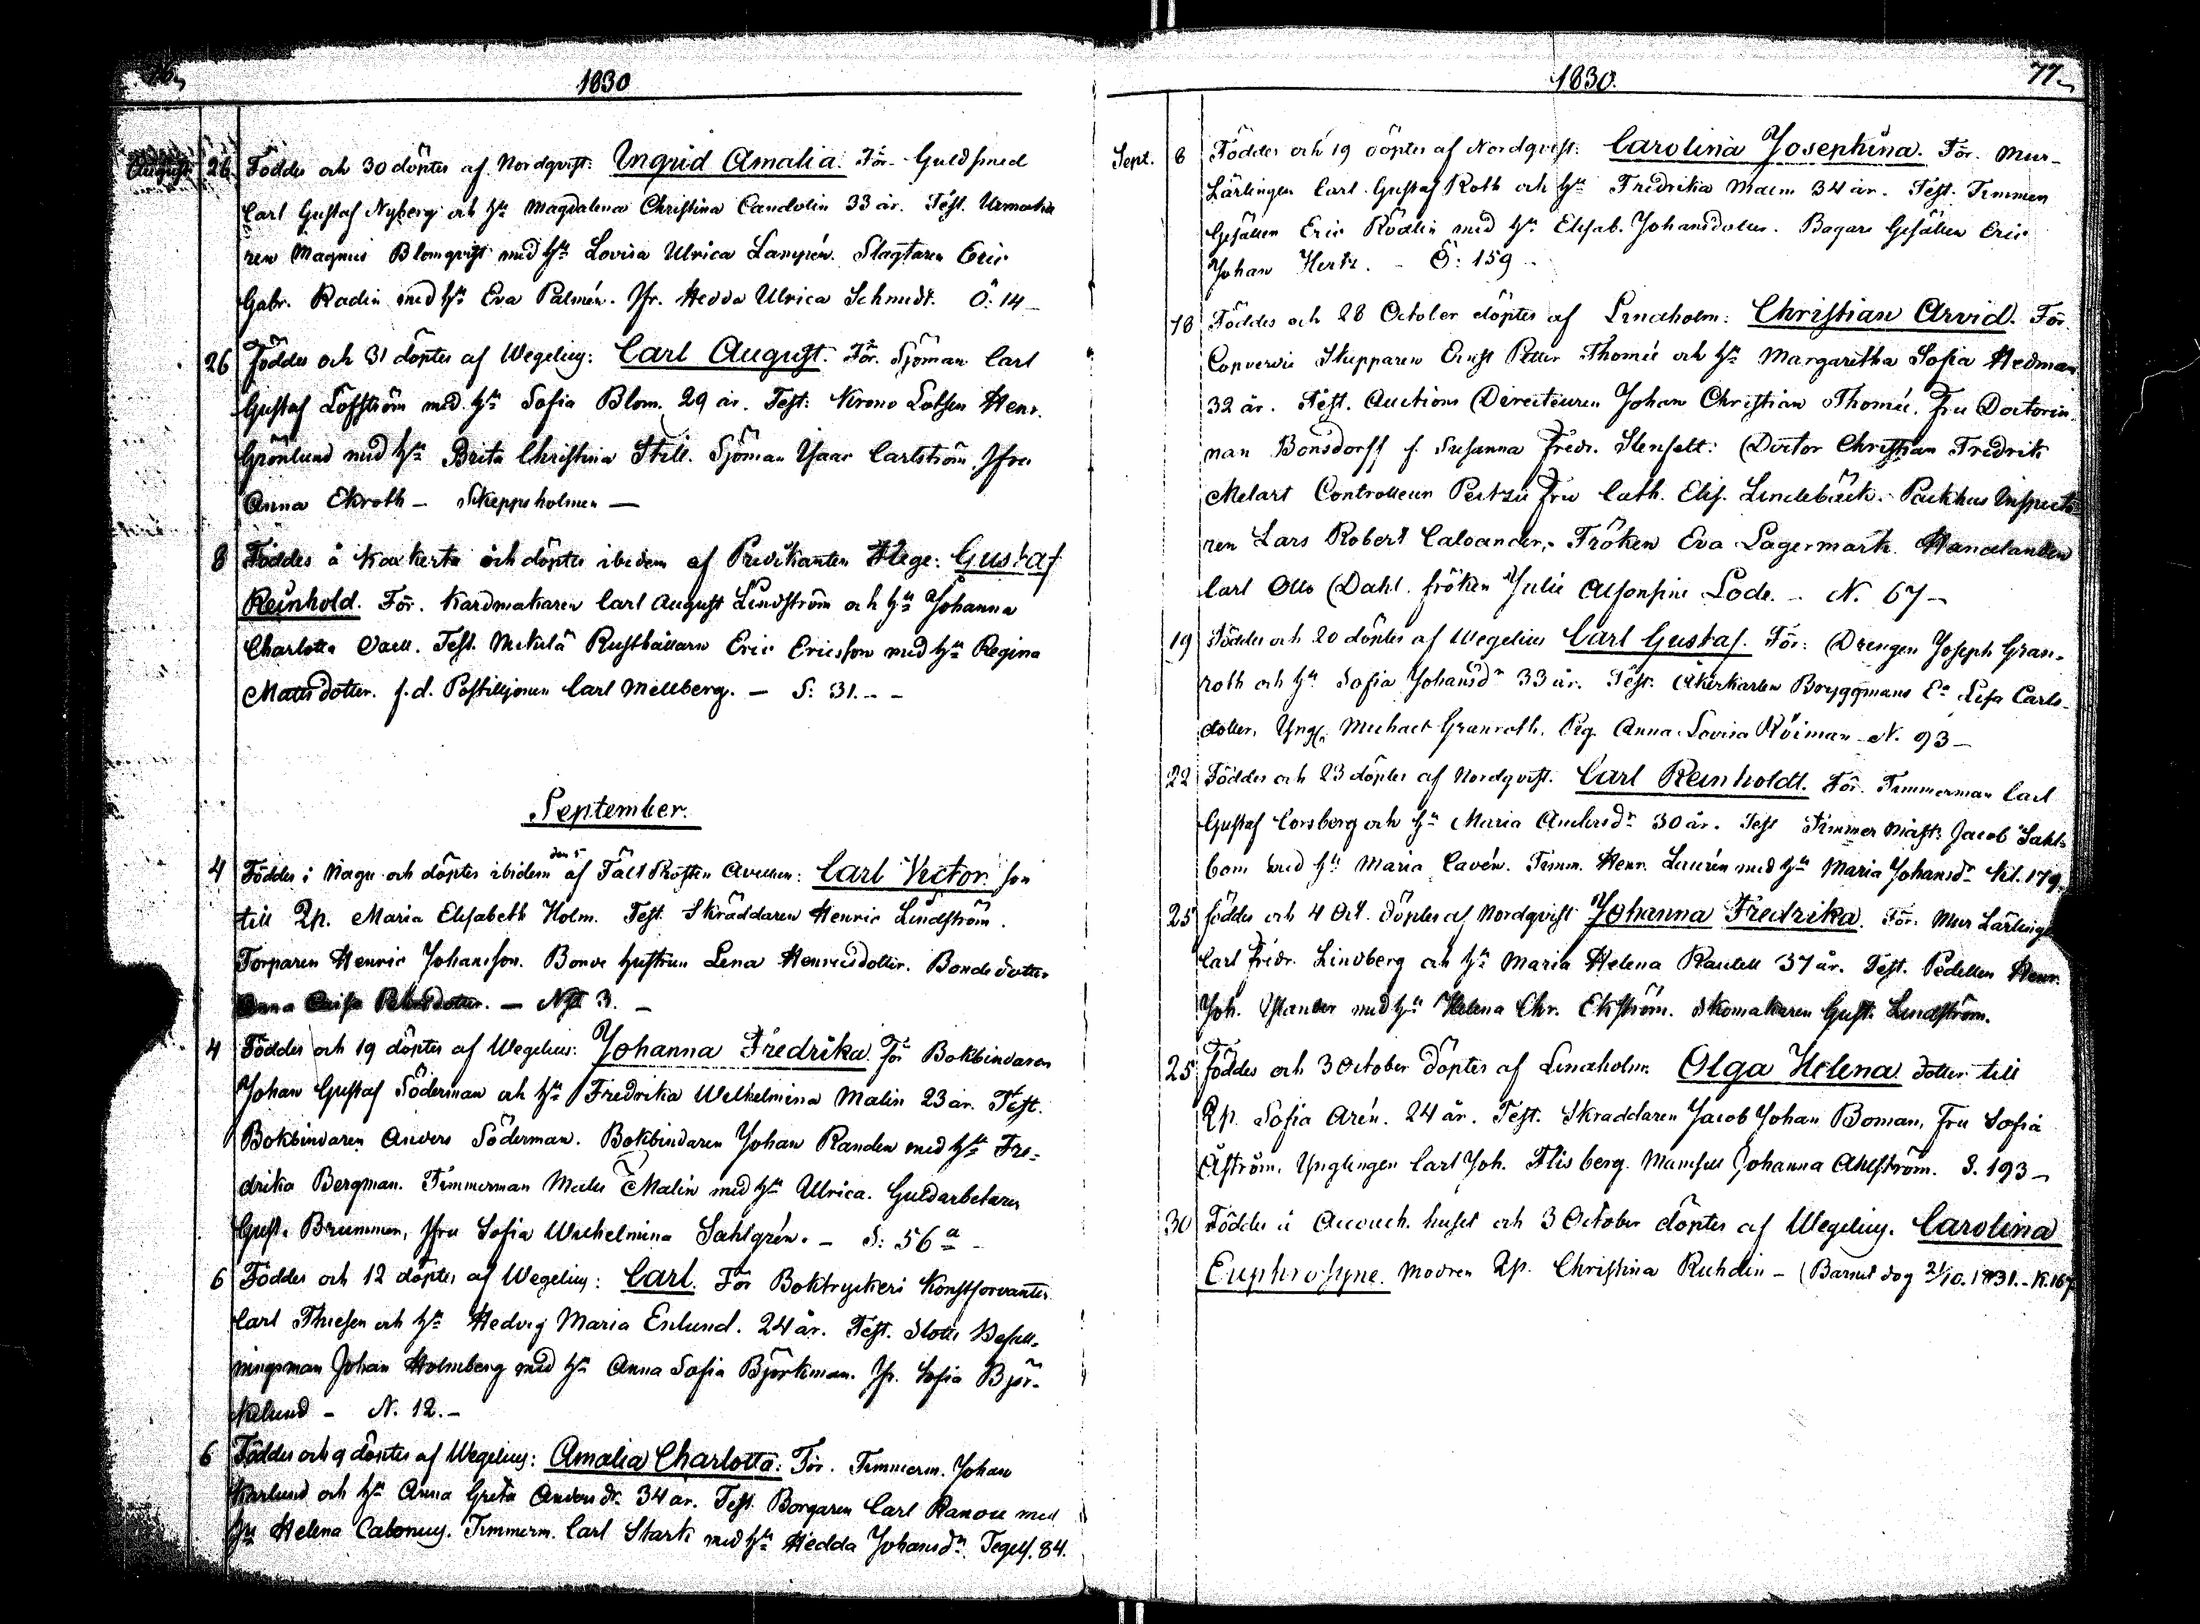 1830
August 26 Föddes och 30 döptes af Nordqvist: Ingrid Amalia. För. Guldsmed
Carl Gustaf Nyberg och h:u Magdalena Christina Candolin 33 år. Test. Urmaka
ren Magnus Blomqvist med h:u Lovisa Ulrica Lampén. Slagtaren Eric
Gabr. Radin med h:u Eva Palmén. Jfr. Hedda Ulrica Schmidt. Ö: 14 –
26 Föddes och 31 döptes af Wegelius: Carl August. För. Sjöman Carl
Gustaf Löfström med h:u Sofia Blom. 29 år. Test: Krono Lotsen Henr.
Grönlund med h:u Brita Christina Still. Sjöman Isaac Carlström. Jfru
Anna Ekroth – Skeppsholmen –
8 Föddes å Kaxkerta och döptes ibidem af Predikanten Hege: Gustaf
Reinhold. För. Kardmakaren Carl August Lindström och h:u Johanna
Charlotta Test. Rusthållaren Eric Ericsson med h:u Regina
Matsdotter. f.d. Postilljonen Carl Mellberg. – S: 31. – –
September.
4 Föddes i Nagu och döptes ibidem den 5 af Carl Victor. son
till Qp. Maria Elisabeth Holm. Test. Skräddaren Henric Lindström.
Torparen Henric Johansson. Bonde hustrun Lena Henricsdotter. Bonde dotter
Anna Caisa – 3. –
4 Föddes och 19 döptes af Wegelius: Johanna Fredrika För Bokbindaren
Johan Gustaf Söderman och h:u Fredrika Wilhelmina Malin 23 år. Test.
Bokbindaren Anders Söderman. Bokbindaren Johan Randen med h:u Fre-
drika Bergman. Timmerman Mats Malin med h:u Ulrica. Guldarbetaren
Gust. Brummer, Jfru Sofia Wilhelmina Sahlgrén. – S: 56 a –
6 Föddes och 12 döptes af Wegelius: Carl. För Boktryckeri Konstförvanten
Carl Thiesen och h:u Hedvig Maria Enlund. 24 år. Test. Slotts Befall-
ningsman Johan Holmberg med h:u Anna Sofia Björkman. Jfr. Sofia Björ-
kelund – N. 12. –
6 Föddes och 9 döptes af Wegelius: Amalia Charlotta: För. Timmerm. Johan
Karlund och h:u Anna Greta Andersdr. 34 år. Test. Borgaren Carl Ranou med
h:u Helena Calonius. Timmerm. Carl Stark med h:u Hedda Johansdr. Tegels. 84.
1830. 77.
Sept. 8 Föddes och 19 döptes af Nordqvist: Carolina Josephina. För. Mur-
Lärlingen Carl Gustaf Roth och h:u Fredrika Malm 34 år. Test. Timmer
Gesällen Eric Rödlin med h:u Elisab. Johansdotter. Bagare Gesällen Eric
Johan Hertz. – Ö: 159 –
18 Föddes och 28 October döptes af Lindholm: Christian Arvid. För.
Copverdie Skepparen Ernst Petter Thomé och h:u Margaretha Sofia Hedman
32 år. Test. Auctions Directeuren Johan Christian Thomé. Fru Doctorin-
nan Bonsdorff f. Susanna Fredr. Stenfelt: Doctor Christian Fredrik
Melart Controlleur Fru Cath. Elis. Lindebäck. Packhus Inspecto
ren Lars Robert Caloander, Fröken Eva Lagermark. Handlanden
Carl Otto Dahl. fröken Julie Alfonsine Lode. – N. 67 –
19 Föddes och 20 döptes af Wegelius Carl Gustaf. För: Drengen Joseph Gran-
roth och h:u Sofia Johansdr 33 år. Test. Åkerkarlen Bryggmans E:a Lisa Carls-
dotter, Yngl. Michael Granroth, Pig. Anna Lovisa N. 93 –
22 Föddes och 23 döptes af Nordqvist. Carl Reinholdt. För. Timmerman Carl
Gustaf Corsberg och h:u Maria Andersdr 30 år. Test Timmer Mäst: Jacob Sahl-
bom med h:u Maria Cavén. Timm. Henr. Laurén med h:u Maria Johansdr Kl. 179.
25 föddes och 4 Oct. döptes af Nordqvist Johanna Fredrika. För. Mur Lärlinge
Carl Fredr. Lindberg och h:u Maria Helena Rautell 37 år. Test. Pedellen Henr.
Joh. Ståander med h:u Helena Chr. Ekström. Skomakaren Gust. Lindström.
25 Föddes och 3 October döptes af Lindholm Olga Helena dotter till
Qp. Sofia Arén. 24 år. Test. Skraddaren Jacob Johan Boman, Fru Sofia
Åström, Ynglingen Carl Joh. Flisberg. Mamsell Johanna Ahlström. S. 193 –
30 Föddes å Accouch. huset och 3 October döptes af Wegelius. Carolina
Euphrosyne. Modren Qp. Christina Ruhdin – (Barnet dog 21/10. 1831. – K. 167